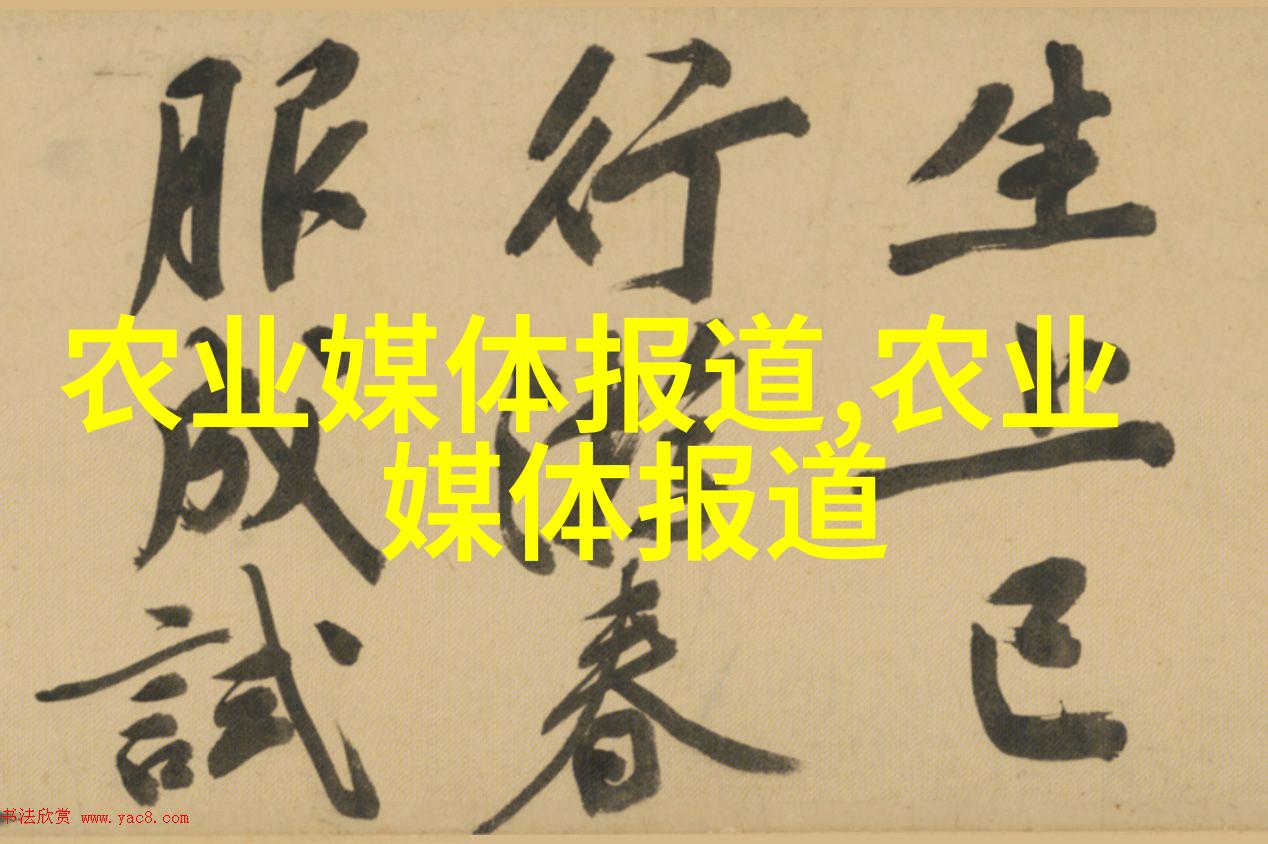 生上巳
行春
服成試
农业媒体报道,农业
媒体报道
书法欣赏 www.yac8.com